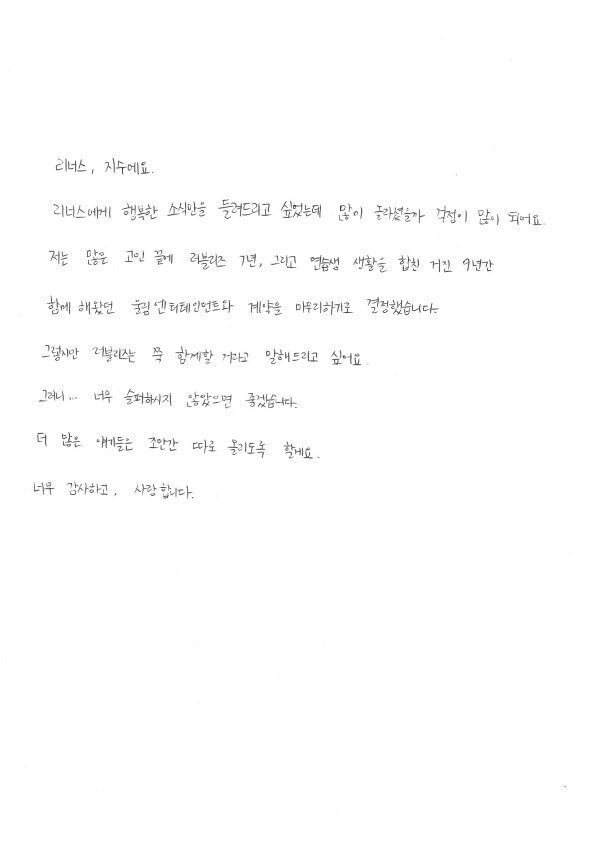 리너스, 지수에요.
리너스에게 행복한 소식만을 들려드리고 싶었는데 많이 놀라셨을까 걱정이 많이 되어요.
저는 많은 고민 끝에 러블리즈 7년, 그리고 연습생 생활을 합친 거진 9년간
함께 해왔던 울림엔터테인먼트와 계약을 마무리하기로 결정했습니다.
그렇지만 러블리즈는 쭉 함께할 거라고 말해드리고 싶어요.
그러니... 너무 슬퍼하시지 않았으면 좋겠습니다.
더 많은 얘기들은 조만간 따로 올리도록 할게요.
너무 감사하고, 사랑합니다.